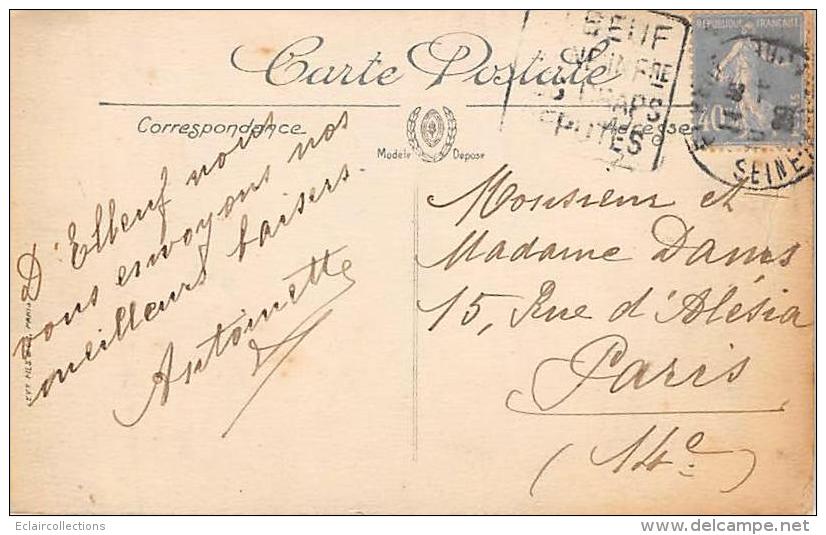 Carte Postale
Correspondance
Adresse
Modèle Déposé
D'Elbeuf nous
vous envoyons nos
meilleurs baisers.
Antoinette
BEUF
INFRE
DRAPS
REPUTES
REPUBLIQUE FRANÇAISE
40
SEINE
Monsieur et
Madame Danis
15, Rue d'Alésia
Paris
(14e)
Eclaircollections
www.delcampe.net